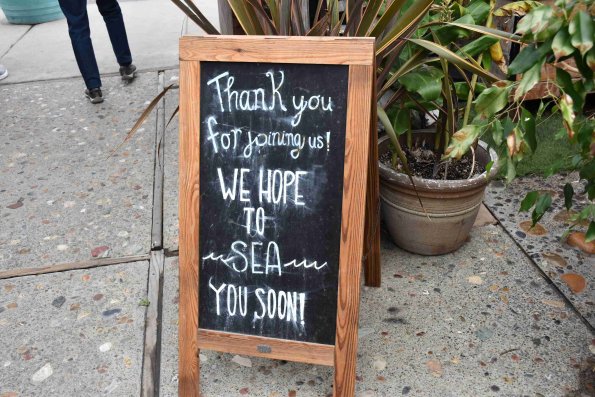 Thank you
for joining us!
WE HOPE
TO
SEA
YOU SOON!